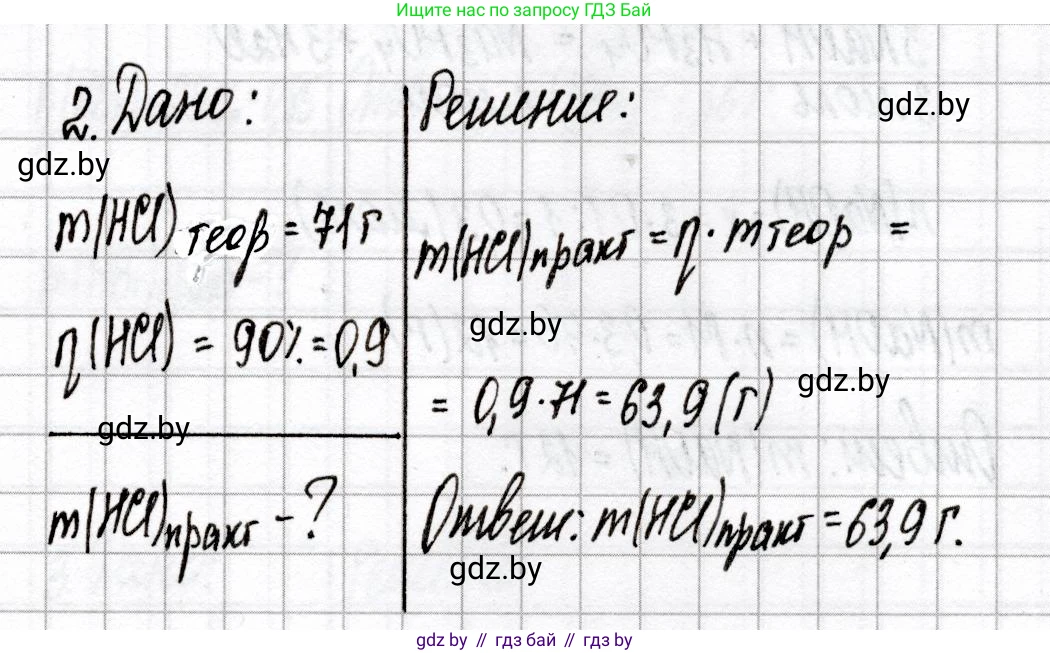 Ищите нас по запросу ГДЗ Бай
2. Дано:
gdz.by
m(HCl) теор = 71 г
η(HCl) = 90% = 0,9
gdz.by
m(HCl)практ - ?
Решение:
gdz.by
m(HCl)практ = η · m теор =
gdz.by
= 0,9 · 71 = 63,9 (г)
gdz.by
Ответ: m(HCl)практ = 63,9 г.
gdz.by
gdz by // гдз бай // гдз by